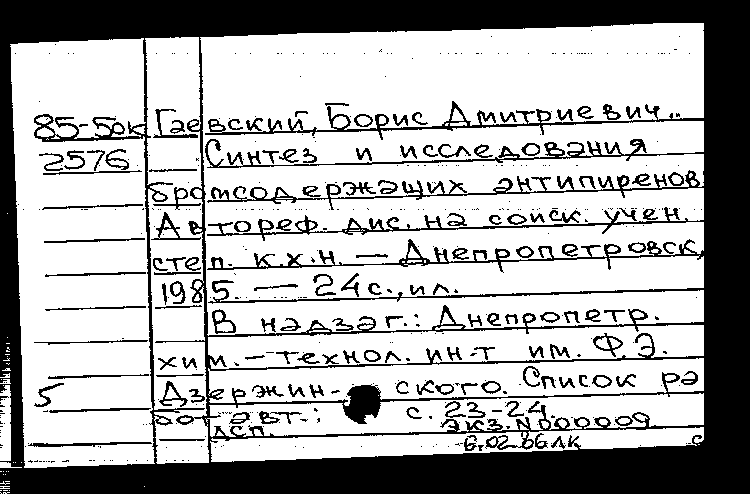 85-5ок Гаевский, Борис Дмитриевич..
2576 Синтез и исследования
бромсодержащих антипиренов:
Автореф. дис. на соиск. учен.
степ. к.х.н. — Днепропетровск,
1985. — 24с., ил.
В надзаг.: Днепропетр.
хим.-технол. ин-т им. Ф.Э.
5 Дзержин- ского. Список ра
бот авт.: с. 23-24.
ДСП. Экз. N000009
6.02.86ЛК с